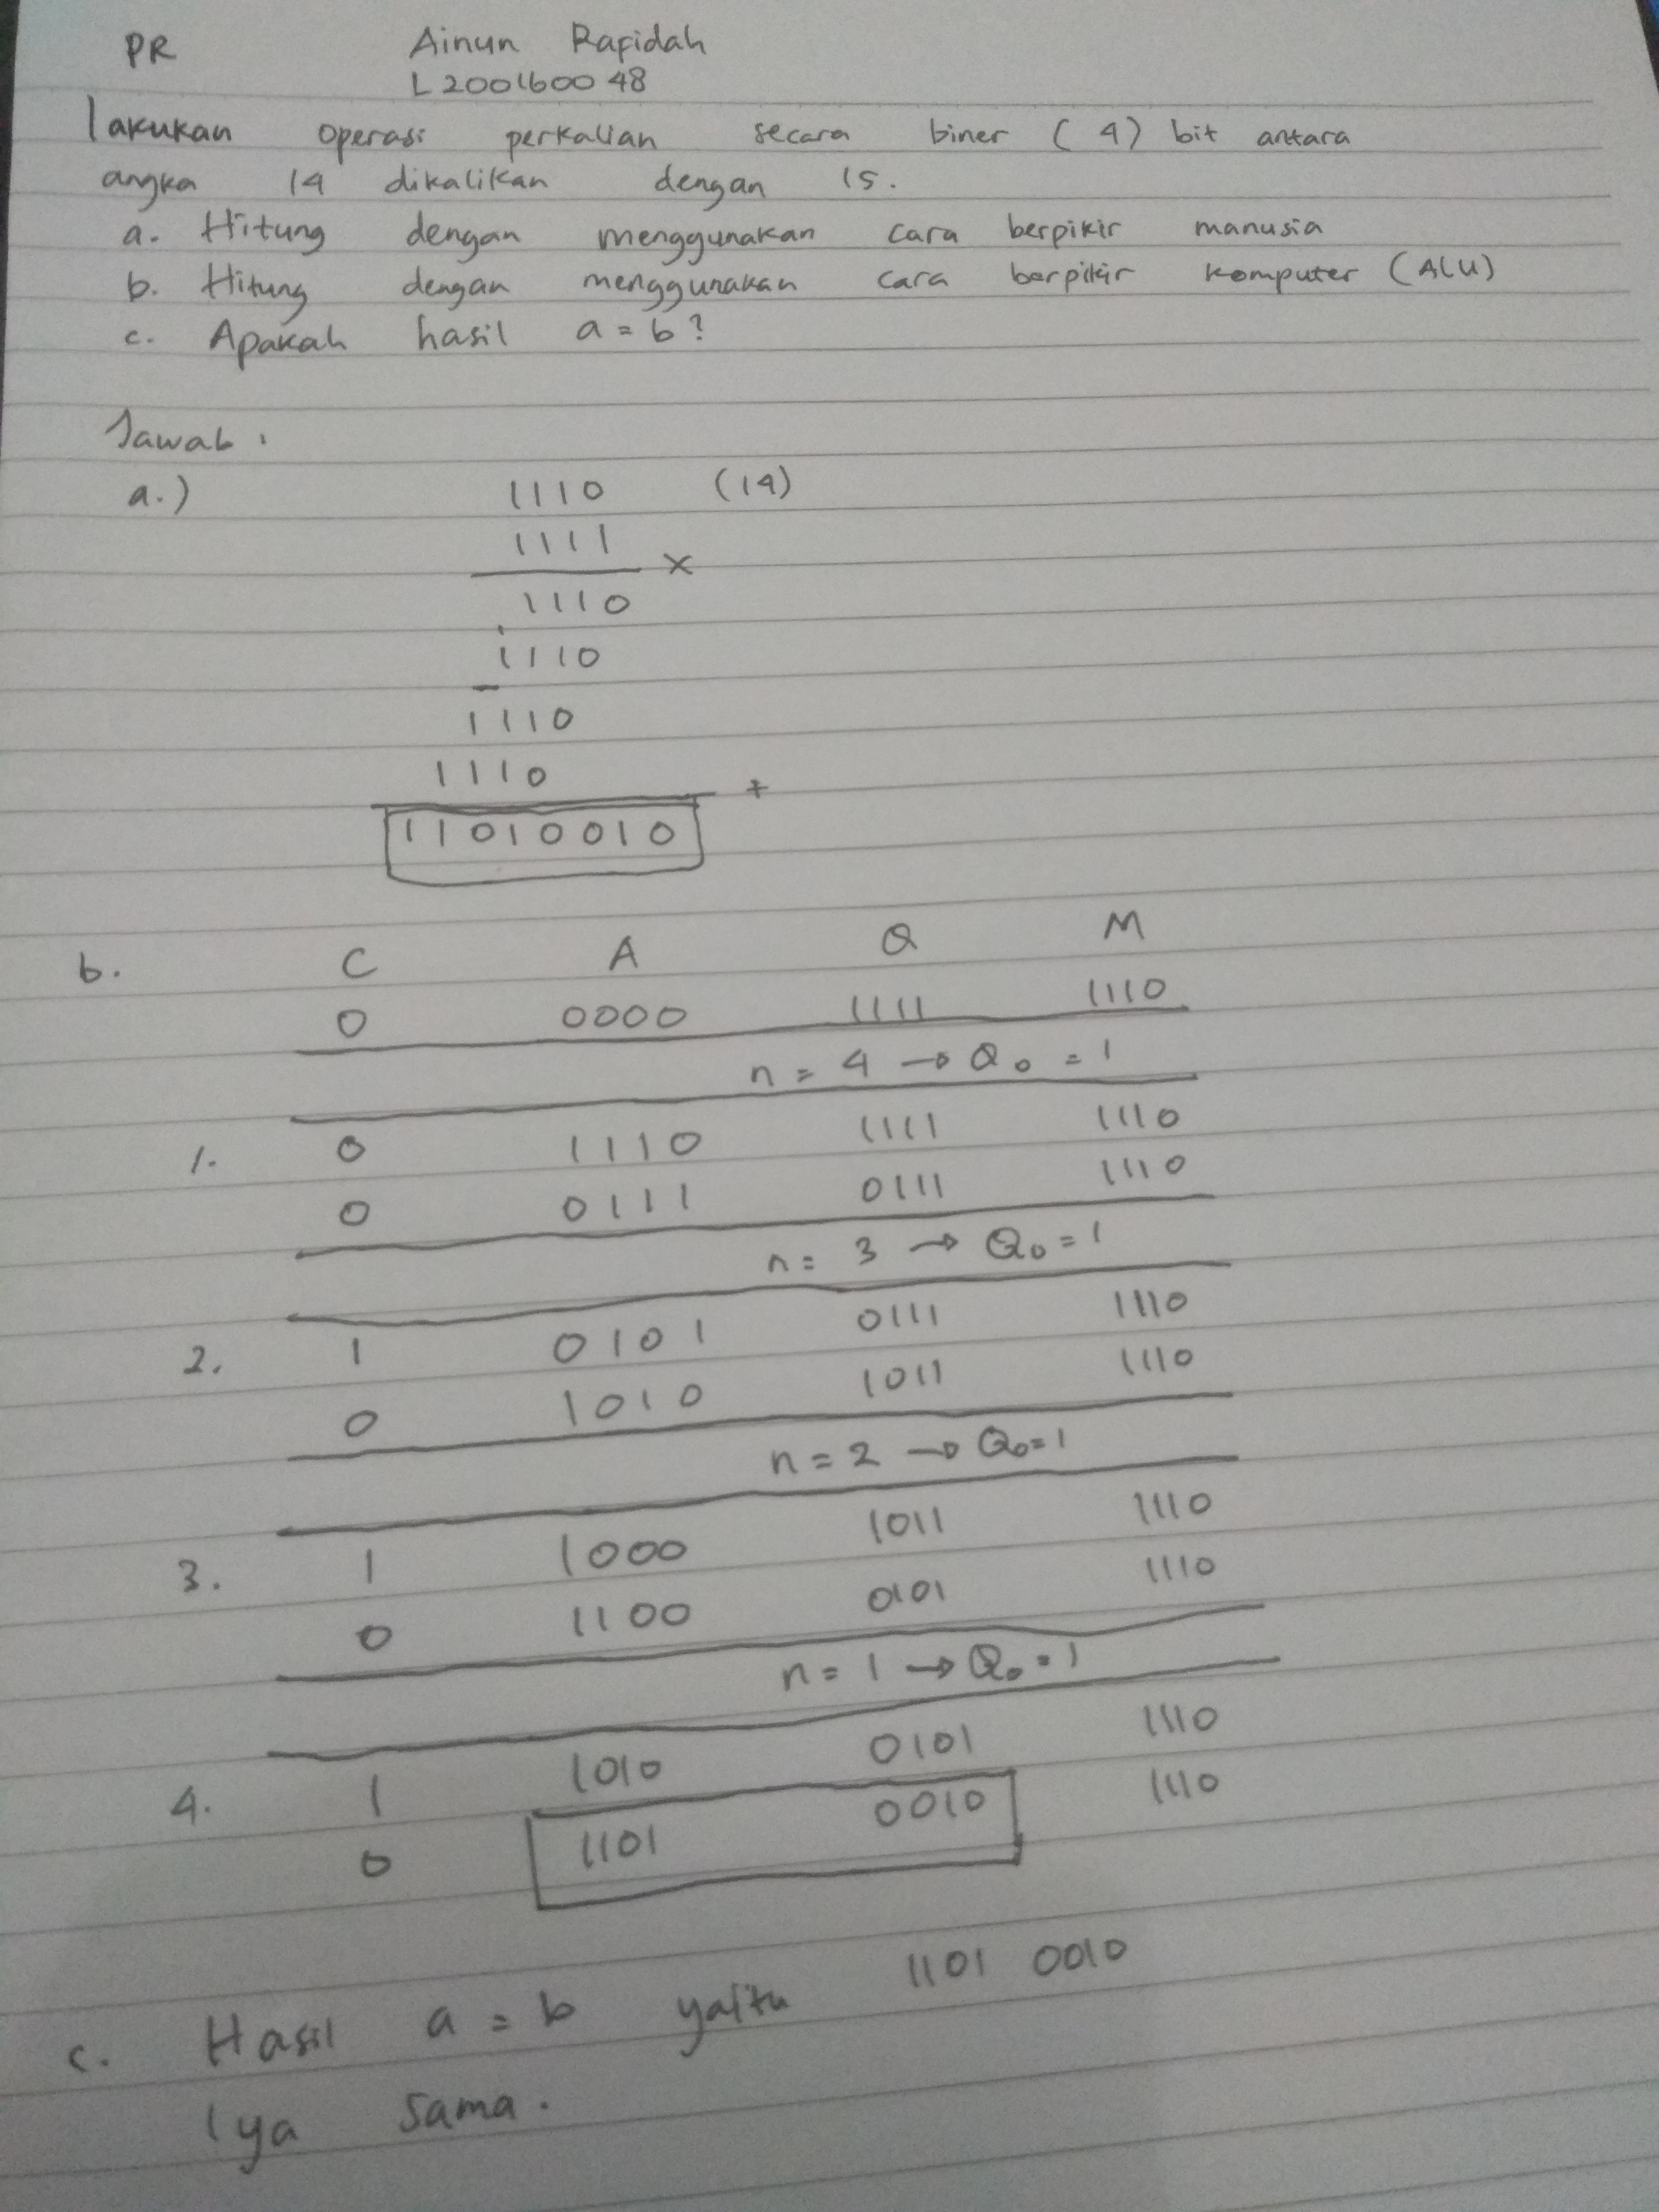 PR Ainun Rafidah
L200160048
lakukan operasi perkalian secara biner (4) bit antara
angka 14 dikalikan dengan 15.
a. Hitung dengan menggunakan cara berpikir manusia
b. Hitung dengan menggunakan cara berpikir komputer (ALU)
c. Apakah hasil a = b?
Jawab :
a.) 1110 (14)
1111 x
1110
1110
1110
1110 +
11010010
b. C A Q M
0 0000 1111 1110
n = 4 → Q0 = 1
1. 0 1110 1111 1110
0 0111 0111 1110
n = 3 → Q0 = 1
2. 1 0101 0111 1110
0 1010 1011 1110
n = 2 → Q0 = 1
3. 1 1000 1011 1110
0 1100 0101 1110
n = 1 → Q0 = 1
4. 1 1010 0101 1110
0 1101 0010 1110
c. Hasil a = b yaitu 1101 0010
Iya sama.